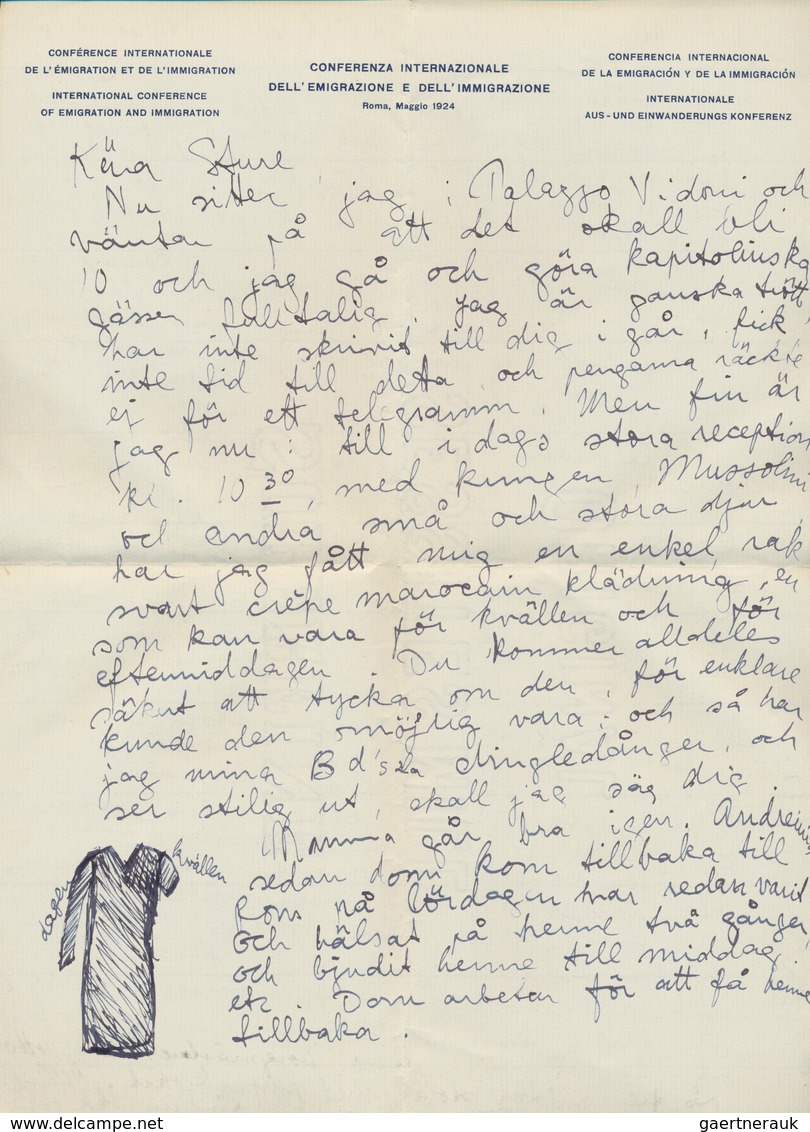 CONFÉRENCE INTERNATIONALE
DE L'ÉMIGRATION ET DE L'IMMIGRATION
INTERNATIONAL CONFERENCE
OF EMIGRATION AND IMMIGRATION
CONFERENZA INTERNAZIONALE
DELL'EMIGRAZIONE E DELL'IMMIGRAZIONE
Roma, Maggio 1924
CONFERENCIA INTERNACIONAL
DE LA EMIGRACIÓN Y DE LA IMMIGRACIÓN
INTERNATIONALE
AUS- UND EINWANDERUNGS KONFERENZ
Kära Sture
Nu sitter jag i Palazzo Vidoni och
väntar på att det skall bli
10 och jag gå och göra kapitolinska
gässen fulltalig. Jag är ganska trött
har inte skrivit till dig i går, fick
inte tid till detta, och pengarna räckte
ej för ett telegramm. Men fin är
jag nu: till i dags stora reception
kl. 10 30, med kungen, Mussolini
och andra små och stora djur
har jag fått mig en enkel, rak
svart crêpe marocain klädning, en
som kan vara för kvällen och för
eftermiddagen. Du kommer alldeles
säkert att tycka om den, för enklare
kunde den omöjlig vara: och så har
jag mina B d's dingledånger, och
ser stilig ut, skall jag säg dig.
Mamma går bra igen.
sedan dom kom tillbaka till
Rom på lördagen har redan varit
och hälsat på henne två gånger
och bjudit henne till middag
etc. Dom arbetar för att få henne
tillbaka.
dagen
kvällen
gaertnerauk